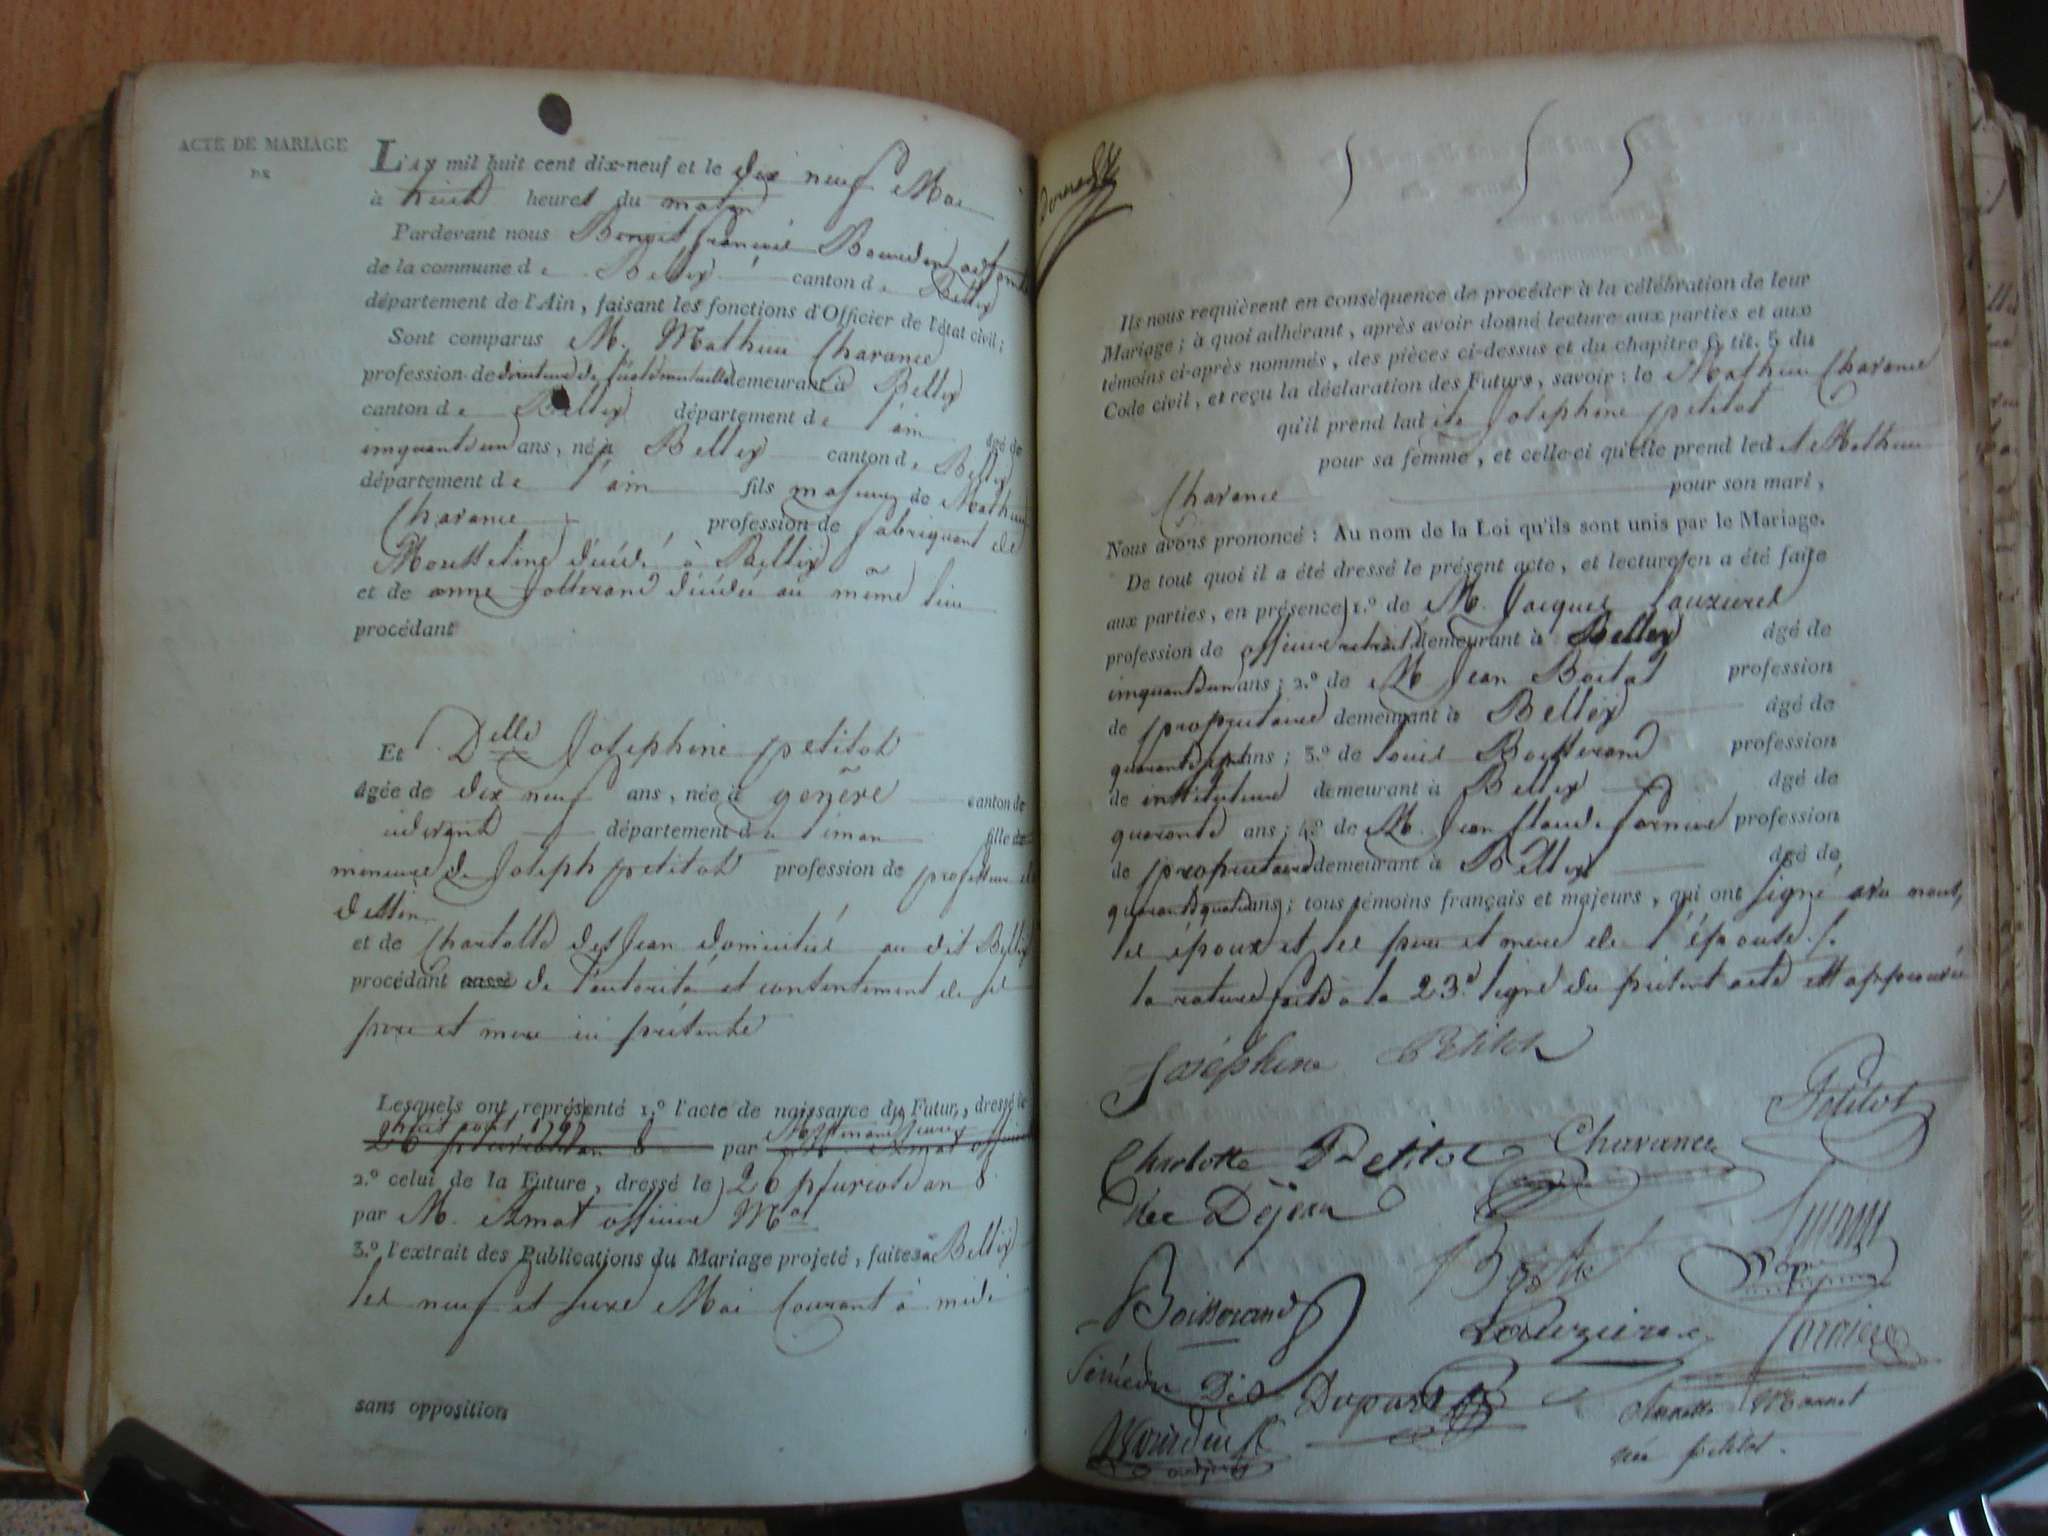 ACTE DE MARIAGE
DE
L'AN mil huit cent dix-neuf et le dix neuf Mai
à huit heures du matin
Pardevant nous Benoit françois Bourdin adjoint
de la commune de Belley canton de Belley
département de l'Ain, faisant les fonctions d'Officier de l'état civil;
Sont comparus M. Mathieu Charance
profession de demeurant à Belley
canton de Belley département de l'ain âgé de
cinquante un ans, né à Belley canton de Belley
département de l'ain fils majeur de Mathieu
Charance profession de fabriquant de
Mousseline décédé à Belley
et de anne décédée au même lieu
procédant
Et Delle Josephine petitot
âgée de dix neuf ans, née à genève canton de
idem département du Léman fille de
mineure de Joseph petitot profession de professeur de
dessin
et de Charlotte desJean domiciliés au dit Belley
procédant de l'autorité et consentement de ses
pere et mere ici présents
Lesquels ont représenté 1.º l'acte de naissance du Futur, dressé le
août 17
26 pluviose an 8 par M. Amat officier
2.º celui de la Future, dressé le 26 pluviose an 8
par M. Amat officier Mal
3.º l'extrait des Publications du Mariage projeté, faites à Belley
les neuf et seize Mai Courant à midi
sans opposition
Ils nous requièrent en conséquence de procéder à la célébration de leur
Mariage; à quoi adhérant, après avoir donné lecture aux parties et aux
témoins ci-après nommés, des pièces ci-dessus et du chapitre 6 tit. 5 du
Code civil, et reçu la déclaration des Futurs, savoir: le Mathieu Charance
qu'il prend ladite Josephine petitot
pour sa femme, et celle-ci qu'elle prend ledit Mathieu
Charance pour son mari,
Nous avons prononcé: Au nom de la Loi qu'ils sont unis par le Mariage.
De tout quoi il a été dressé le présent acte, et lecture en a été faite
aux parties, en présence 1.º de M. Jacques Lauzieres
profession de officier retraité demeurant à Belley âgé de
cinquante un ans; 2.º de M Jean Boitat profession
de propriétaire demeurant à Belley âgé de
quarante sept ans; 3.º de Louis Boisserand profession
de instituteur demeurant à Belley âgé de
quarante ans; 4.º de M. Jean Claude fornier profession
de propriétaire demeurant à Belley âgé de
quarante quatre ans; tous témoins français et majeurs, qui ont signé avec nous,
les époux et les pere et mere de l'épouse.
la rature faite à la 23.e ligne du présent acte est approuvée
Joséphine Petitot
Petitot
Charlotte Petitot Charance
née Déjean
Boisserand
Lauzieres
Dupars
Bourdin
adjoint
Annette Monnet
née petitot.